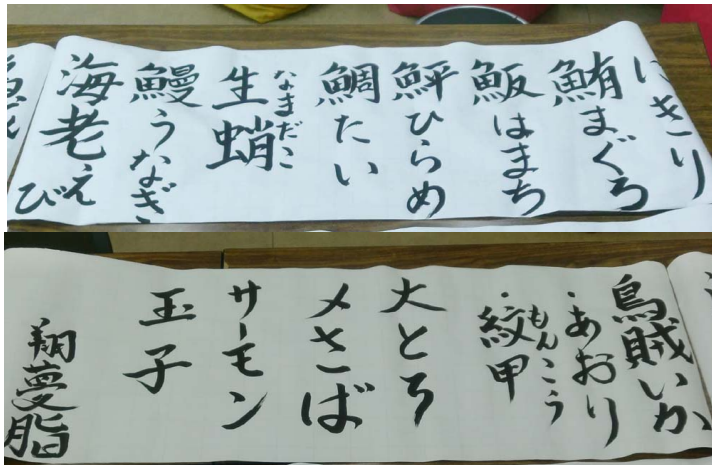 にぎり
鮪まぐろ
魬はまち
鮃ひらめ
鯛たい
生蛸なまだこ
鰻うなぎ
海老えび
鳥賊いか
・あおり
・紋甲もんこう
大とろ
〆さば
サーモン
玉子
翔蔓脂